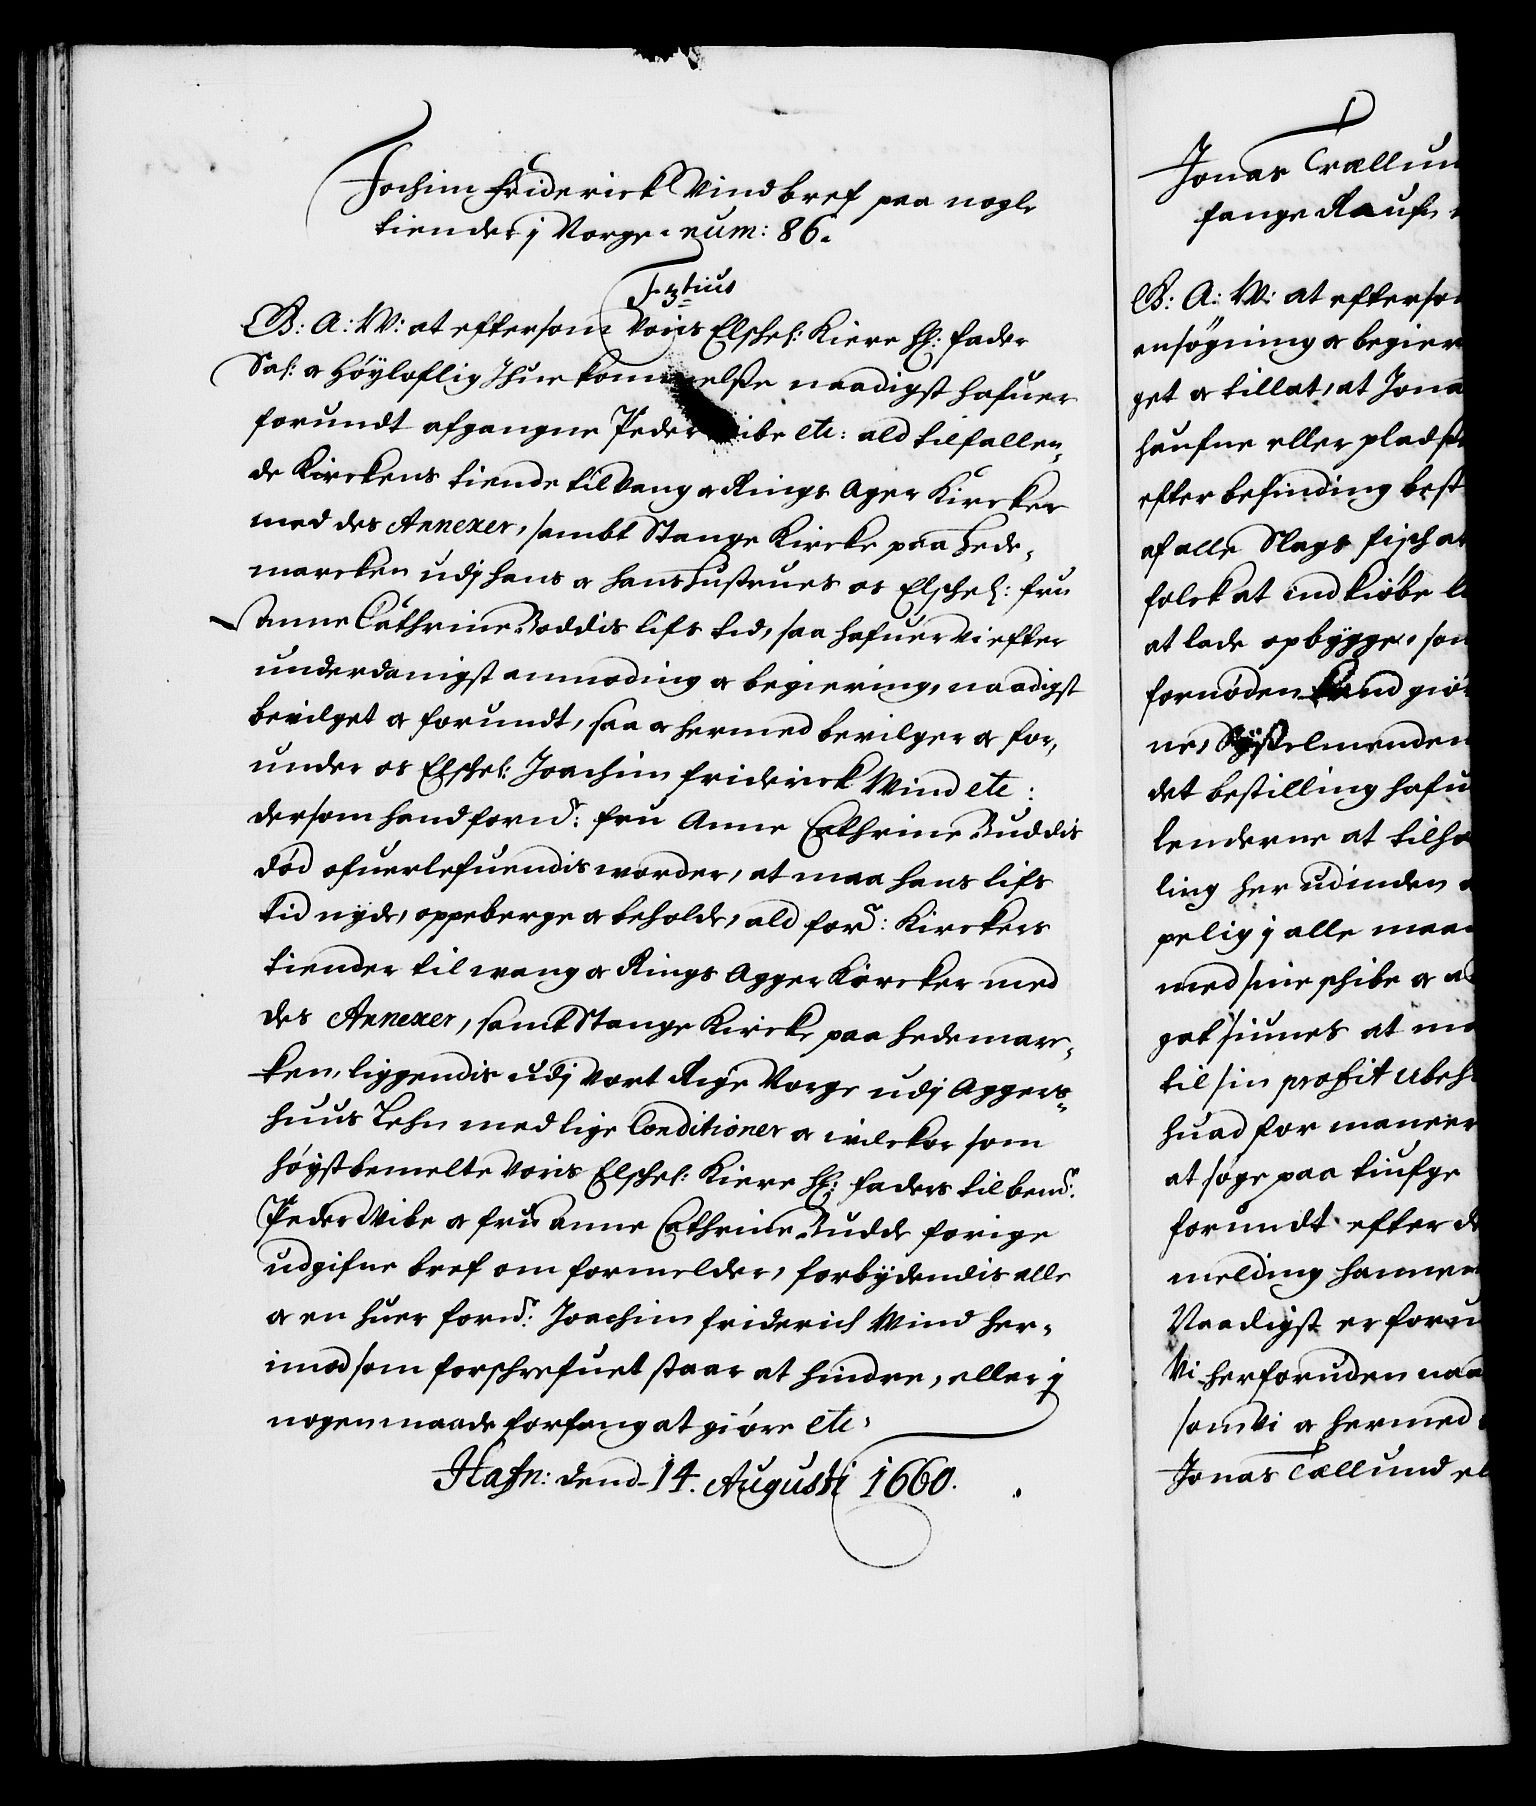 Jochim Friderick Vind bref paa nogle
tiender j Norge. num: 86.
F. 3tius
G: A: W: at eftersom Voris Elschel: Kiere H: fader
Sal: og Høyloflig Ihukommelsse naadigst hafuer
forundt afgangne Peder Vibe etc: ald tilfallen,,
de Kirckens tiende til Vang og Rings Ager Kircker
med des Annexer, sambt Stange Kircke paa Hede,
marcken udj hans og hans hustrues os Elschel: fru
Anne Cathrine Boddis lifs tid, saa hafuer Vi efter
underdanigst anmoding og begiering, naadigst
bevilget og forundt, saa og hermed bevilger og for,
under os Elschel: Joachim friderick Wind etc:
dersom hand fornd: fru Anne Cathrine Buddis
død ofuerlefuendis worder, at maa hans lifs
tid nyde, oppeberge og beholde, ald ford: Kirckers
tiender til wang og Rings Agger Kircker med
des Annexer, sambt Stange Kircke paa Hedemarc,
ken, liggendis udj vort Rige Norge udj Aggers,,
huus Lehn med lige Conditioner og vilckor som
høystbemelte Voris Elschel: Kiere H: faders til bemd:
Peder Vibe og fru Anne Cathrine Budde forige
udgifne bref om formelder, forbydendis alle
og en huer fornd: Joachim friderich Wind her,
imod som forschrefuet staar at hindre, eller j
nogen maade forfang at giøre etc:
Hafn: dend 14. Augusti 1660.
Jonas Trællun
fange Raufn
G: A: W: at efterso
ensøgning og begier
get og tillat, at Jona
haufne eller pladse
efter befinding best
af alle Slags fisch at
folck at indkiøbe
at lade opbygge, som
fornøden kand giø
ne, Sysselmenden
det bestilling hafu
lenderne at tilho
ling her udinden
pelig j alle maa
med sine schibe og
got siunes at
til sin profit ubeh
huad for maneer
at søge paa
forundt efter de
melding hannem
Naadigst er foru
Vi herforuden naa
som Vi og hermed
Jonas Tællund el